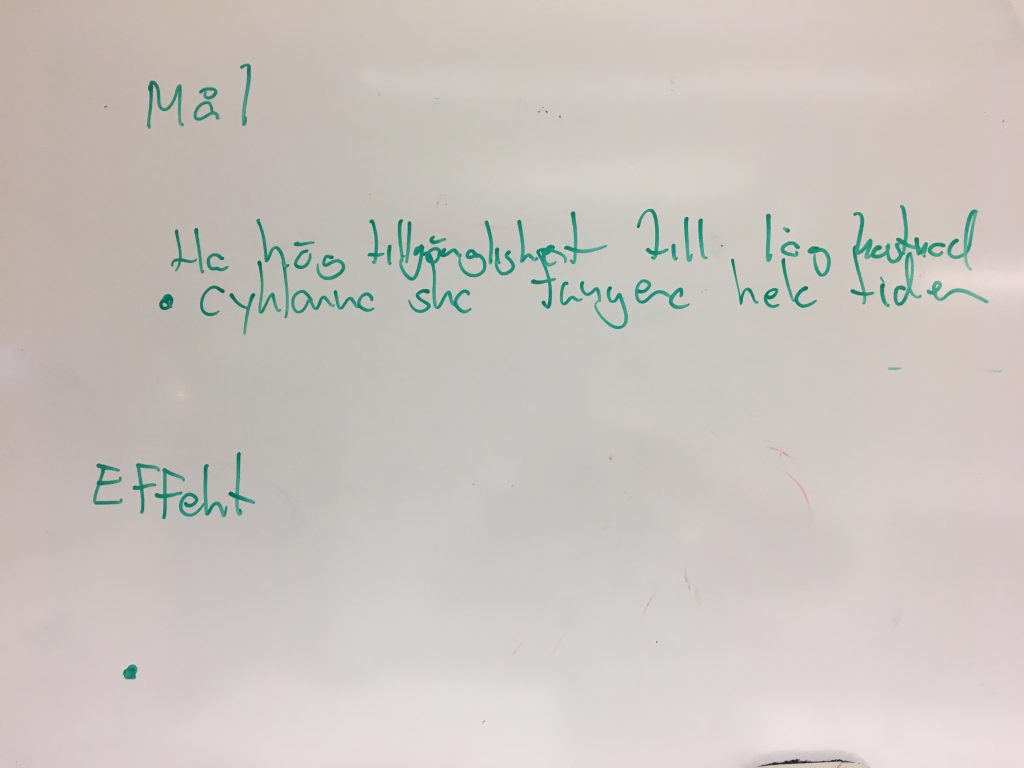 Mål
Ha hög tillgänglighet till låg kostnad
• Cyklarna ska fungera hela tiden
Effekt
•